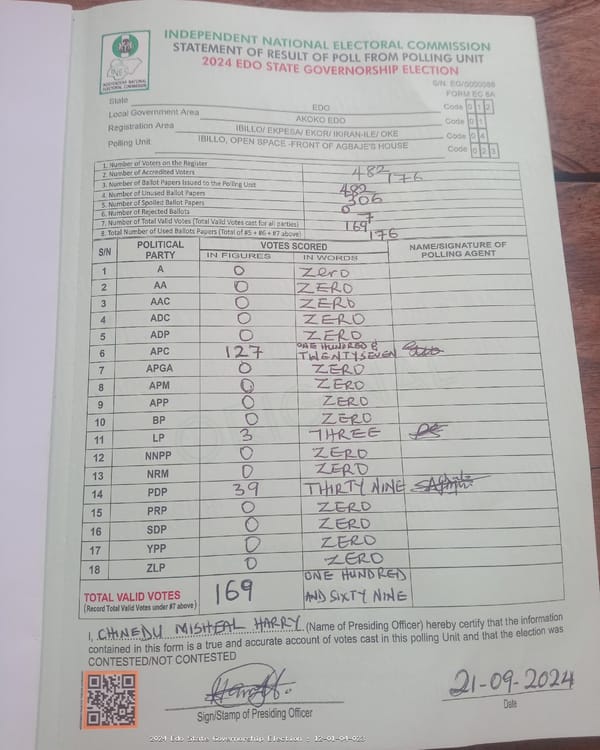 INDEPENDENT NATIONAL ELECTORAL COMMISSION
STATEMENT OF RESULT OF POLL FROM POLLING UNIT
2024 EDO STATE GOVERNORSHIP ELECTION
INDEPENDENT NATIONAL ELECTORAL COMMISSION
FORM EC 8A
State EDO Code 1 2
Local Government Area AKOKO EDO Code 0 1
Registration Area IBILLO/ EKPESA/ EKOR/ IKIRAN-ILE/ OKE Code 0 4
Polling Unit IBILLO, OPEN SPACE -FRONT OF AGBAJE'S HOUSE Code 0 2 3
1. Number of Voters on the Register 482
2. Number of Accredited Voters 176
3. Number of Ballot Papers Issued to the Polling Unit 482
4. Number of Unused Ballot Papers 306
5. Number of Spoiled Ballot Papers 0
6. Number of Rejected Ballots 7
7. Number of Total Valid Votes (Total Valid Votes cast for all parties) 169
8. Total Number of Used Ballots Papers (Total of #5 + #6 + #7 above) 176
S/N POLITICAL PARTY VOTES SCORED NAME/SIGNATURE OF POLLING AGENT
IN FIGURES IN WORDS
1 A 0 Zero
2 AA 0 ZERO
3 AAC 0 ZERO
4 ADC 0 ZERO
5 ADP 0 ZERO
6 APC 127 ONE HUNDRED & TWENTYSEVEN
7 APGA 0 ZERO
8 APM 0 ZERO
9 APP 0 ZERO
10 BP 0 ZERO
11 LP 3 THREE
12 NNPP 0 ZERO
13 NRM 0 ZERO
14 PDP 39 THIRTY NINE
15 PRP 0 ZERO
16 SDP 0 ZERO
17 YPP 0 ZERO
18 ZLP 0 ZERO
TOTAL VALID VOTES 169 ONE HUNDRED AND SIXTY NINE
(Record Total Valid Votes under #7 above)
I, CHINEDU MISHEAL HARRY (Name of Presiding Officer) hereby certify that the information
contained in this form is a true and accurate account of votes cast in this polling Unit and that the election was
CONTESTED/NOT CONTESTED
21-09-2024
Sign/Stamp of Presiding Officer Date
2024 Edo State Governorship Election - 12-01-04-023